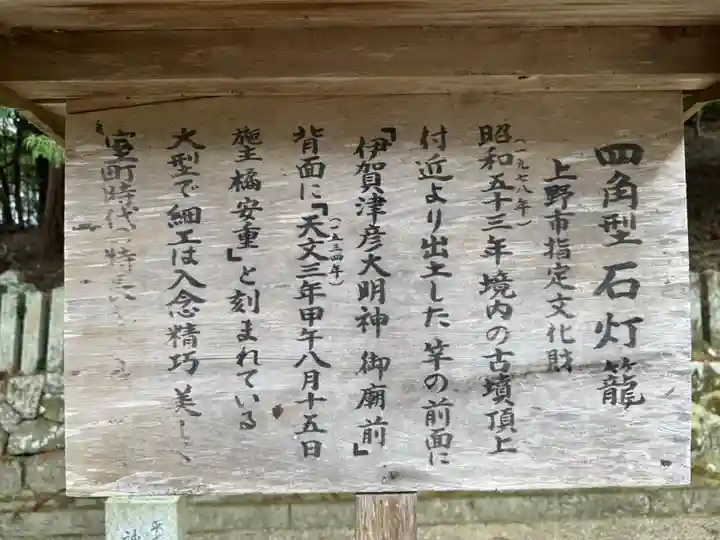 四角型石灯籠
上野市指定文化財
(一九七八年)
昭和五十三年境内の古墳頂上
付近より出土した竿の前面に
「伊賀津彦大明神御廟前」
(一五三四年)
背面に「天文三年甲午八月十五日
施主橘安重」と刻まれている
大型で細工は入念精巧美しく
室町時代の特長
平
神